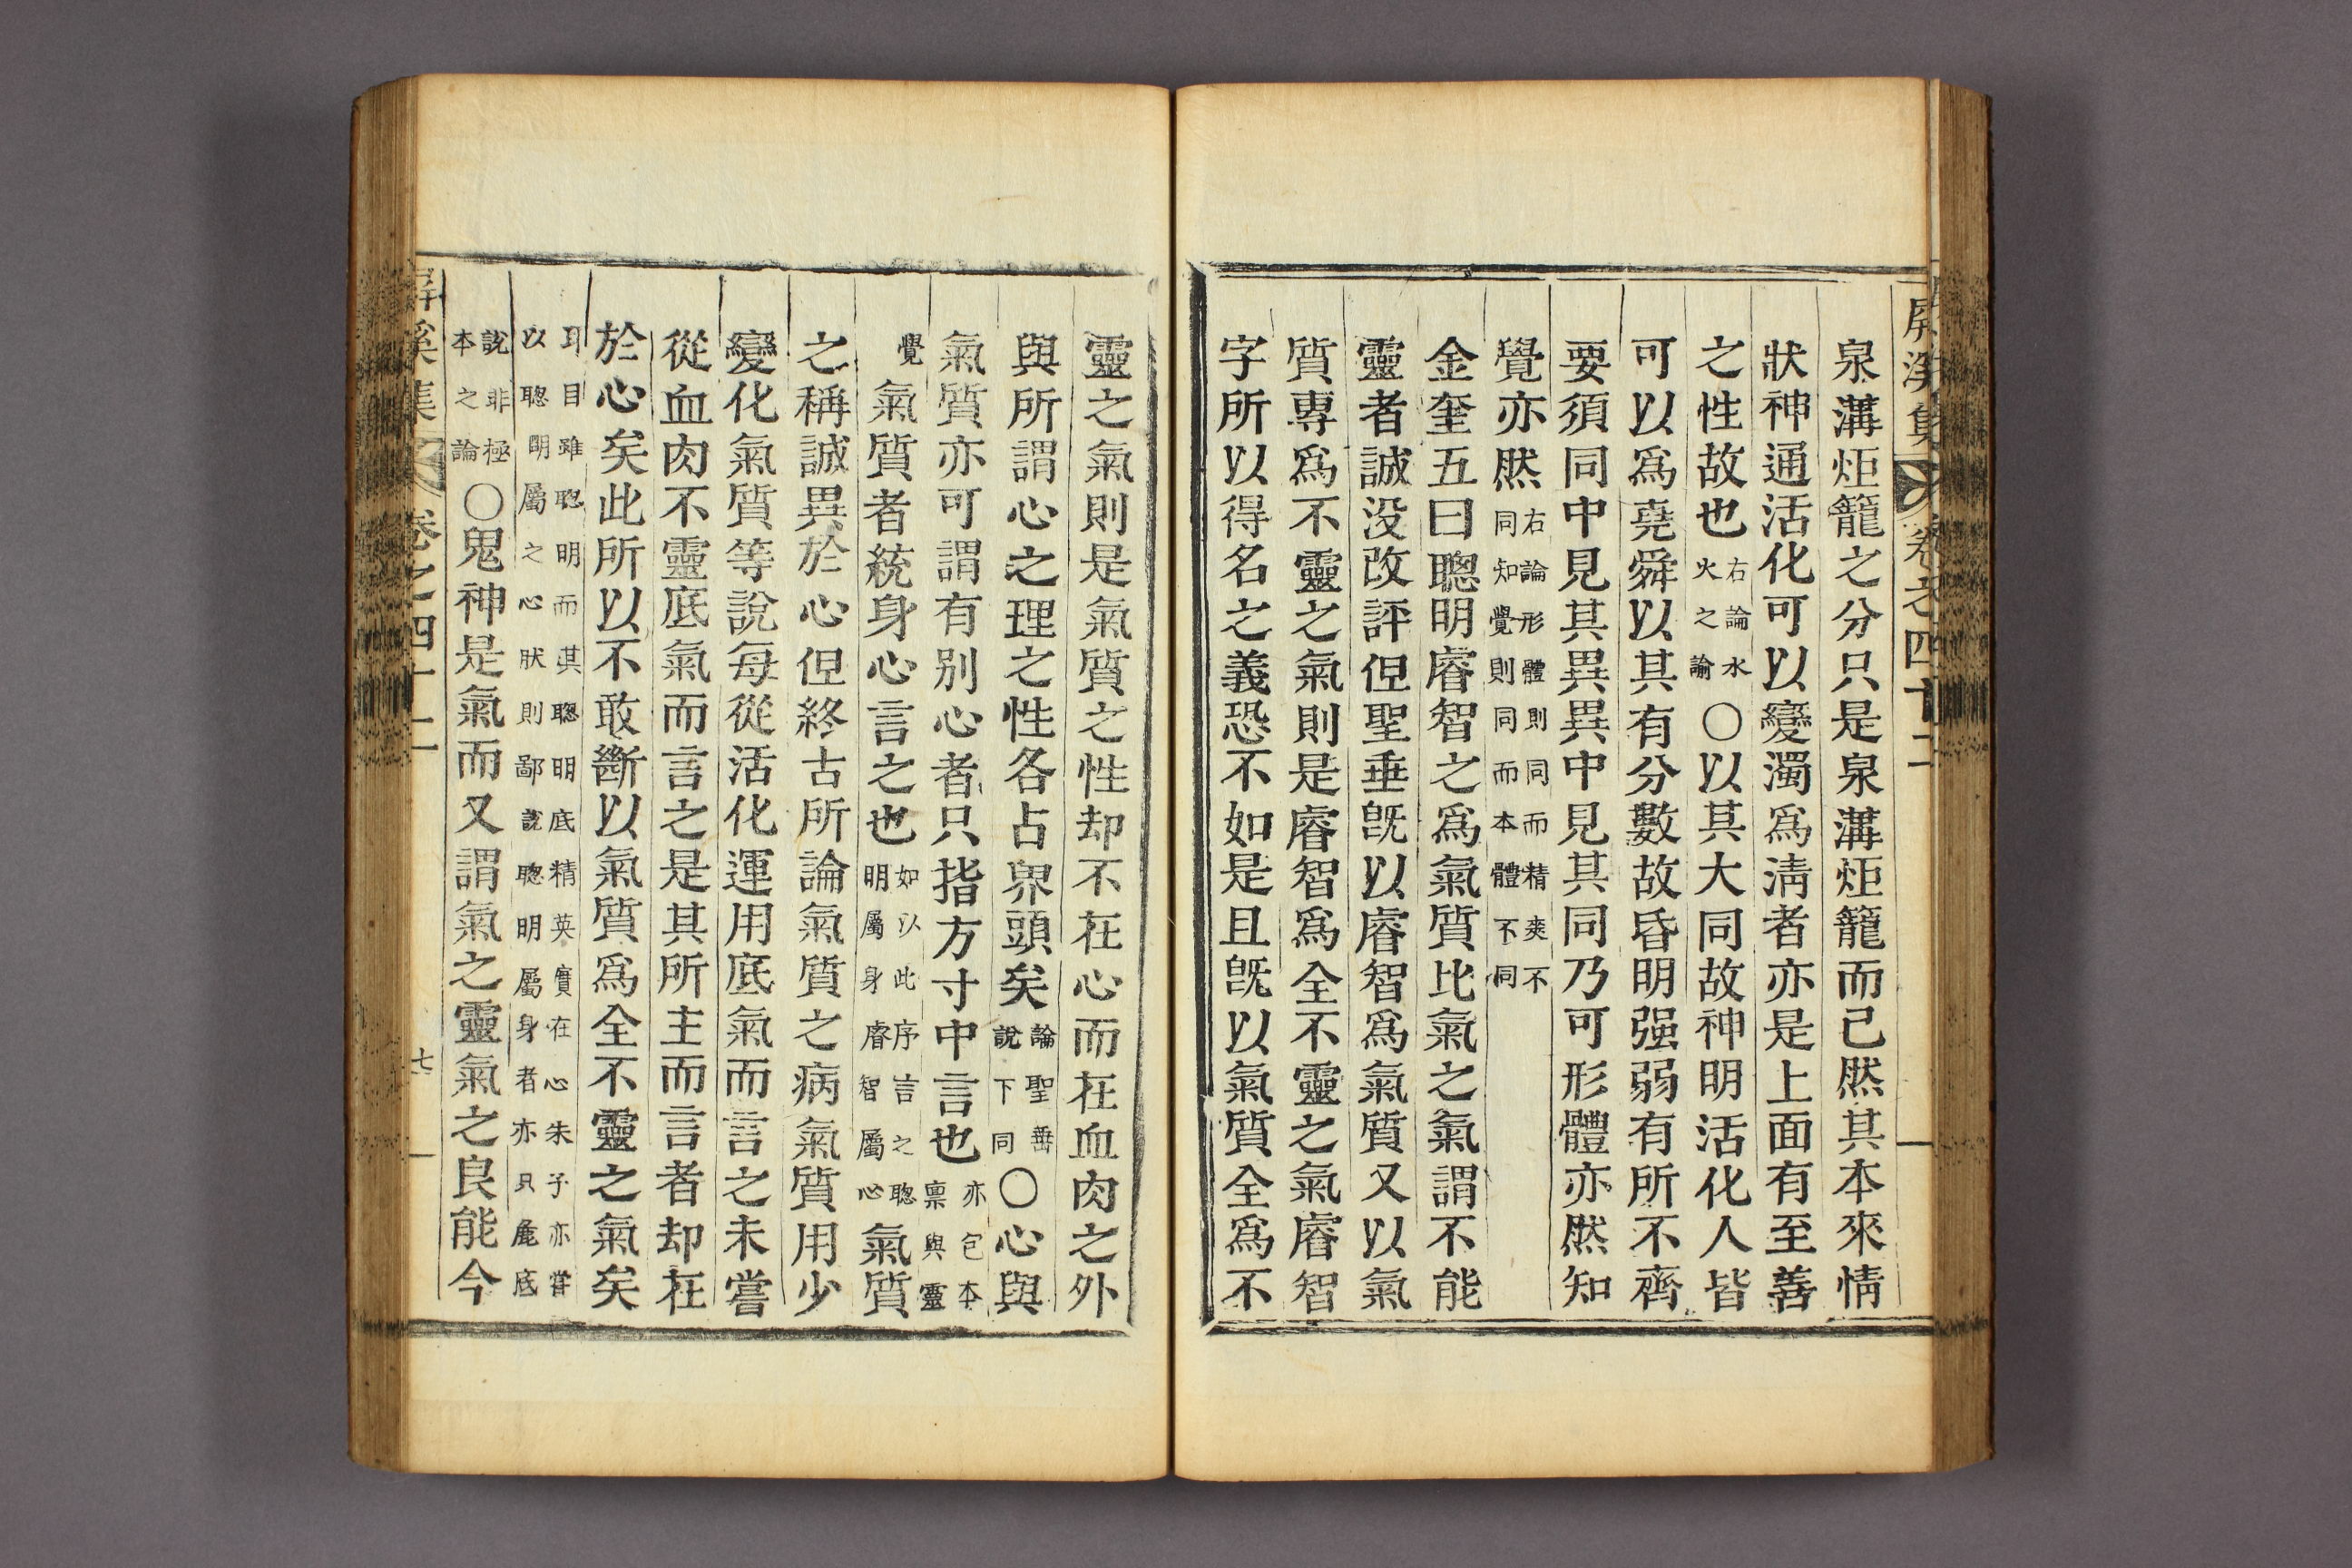 屛溪集 卷之四十二
泉溝炬籠之分只是泉溝炬籠而已然其本來情
狀神通活化可以變濁爲淸者亦是上面有至善
之性故也右論水火之諭○以其大同故神明活化人皆
可以爲堯舜以其有分數故昏明强弱有所不齊
要須同中見其異異中見其同乃可形體亦然知
覺亦然右論形體則同而精爽不同知覺則同而本體不同
金奎五曰聰明睿智之爲氣質比氣之氣謂不能
靈者誠沒改評但聖垂旣以睿智爲氣質又以氣
質專爲不靈之氣則是睿智爲全不靈之氣睿智
字所以得名之義恐不如是且旣以氣質全爲不
靈之氣則是氣質之性却不在心而在血肉之外
與所謂心之理之性各占界頭矣論聖垂說下同○心與
氣質亦可謂有別心者只指方寸中言也亦包本稟與靈
覺氣質者統身心言之也如以此序言之聰明屬身睿智屬心氣質
之稱誠異於心但終古所論氣質之病氣質用少
變化氣質等說每從活化運用底氣而言之未嘗
從血肉不靈底氣而言之是其所主而言者却在
於心矣此所以不敢斷以氣質爲全不靈之氣矣
耳目雖聰明而其聰明底精英實在心朱子亦嘗以聰明屬之心狀則鄙說聰明屬身者亦只麁底
說非極本之論○鬼神是氣而又謂氣之靈氣之良能今
屛溪集 卷之四十二 七